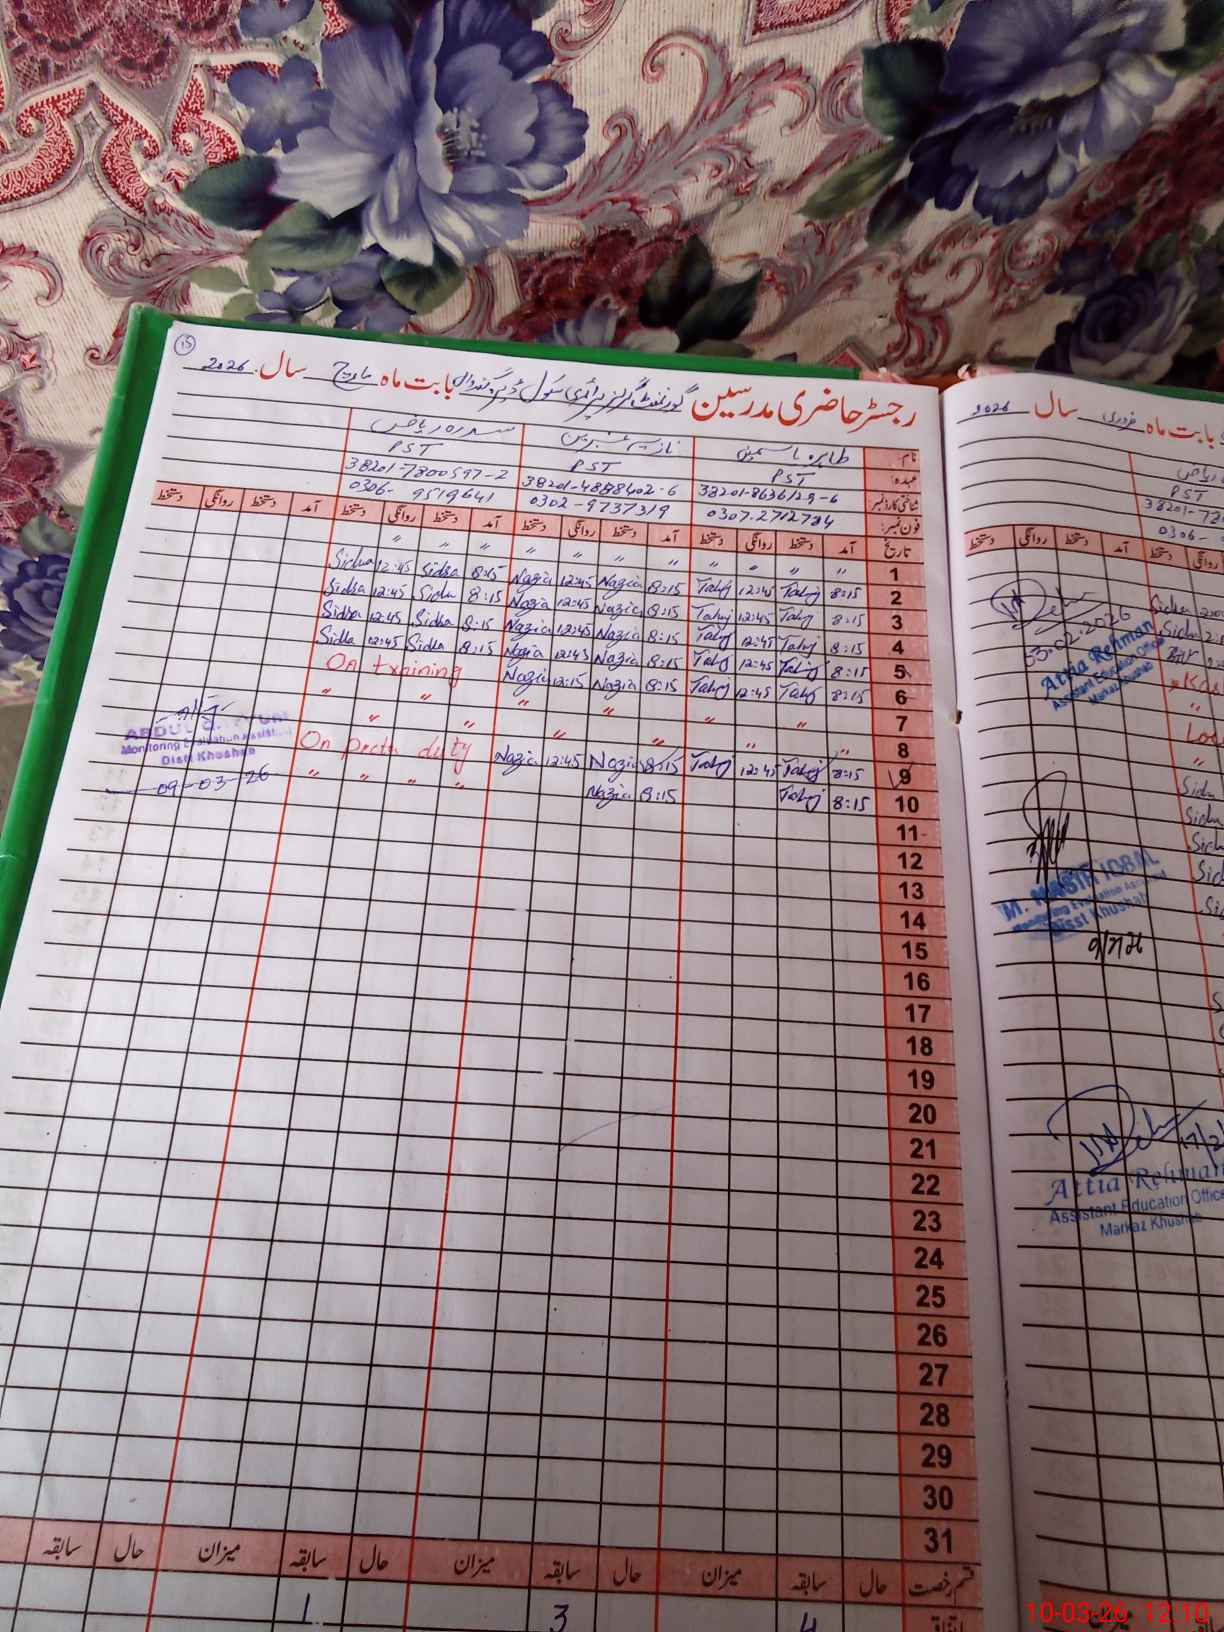 15
رجسٹر حاضری مدرسین گورنمنٹ گرلز پرائمری سکول بابت ماہ مارچ سال 2026
نام: طاہرہ یاسمین نازیہ سدرہ ریاض
عہدہ: PST PST PST
شناختی کارڈ نمبر 38201-8636129-6 38201-4888402-6 38201-7800597-2
فون نمبر: 0307-2712724 0302-9737319 0306-9519641
تاریخ آمد دستخط روانگی دستخط آمد دستخط روانگی دستخط آمد دستخط روانگی دستخط آمد دستخط روانگی دستخط
1 " " " " " " " " " "
2 8:15 Tahij 12:45 Tahij 8:15 Nazia 12:45 Nazia 8:15 Sidra 12:45 Sidra
3 8:15 Tahij 12:45 Tahij 8:15 Nazia 12:45 Nazia 8:15 Sidra 12:45 Sidra
4 8:15 Tahij 12:45 Tahij 8:15 Nazia 12:45 Nazia 8:15 Sidra 12:45 Sidra
5 8:15 Tahij 12:45 Tahij 8:15 Nazia 12:45 Nazia 8:15 Sidra 12:45 Sidra
6 8:15 Tahij 12:45 Tahij 8:15 Nazia 12:15 Nazia On training
7 " " " " " "
8 " " " " " "
9 8:15 Tahij 12:45 Tahij 8:15 Nazia 12:45 Nazia On duty
10 8:15 Tahij 8:15 Nazia " " " "
11
12
13
14
15
16
17
18
19
20
21
22
23
24
25
26
27
28
29
30
31
قسم رخصت حال سابقہ میزان حال سابقہ میزان حال سابقہ میزان حال سابقہ
اتفاقیہ 4 3 1
ABDUL
Monitoring Evaluation Assistant
Distt Khushab
09-03-26
بابت ماہ فروری سال 2026
ریاض
PST
38201-78
0306-
آمد دستخط روانگی دستخط
03.02.2026
Attia Rehman
Assistant Education Officer
Markaz Khushab
M. NASIR IQBAL
Monitoring Evaluation Assistant
Distt Khushab
17/2/
Attia Rehman
Assistant Education Office
Markaz Khushab
10-03-26 12:10